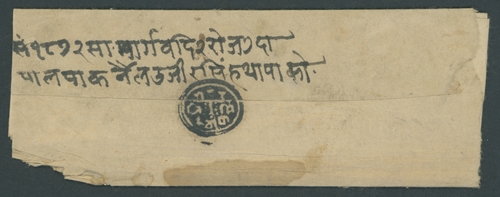 सं १८७२ सा मार्ग वदि २ रोज ७ दा
पाल्पा कर्नैल उजीरसिंह थापा को